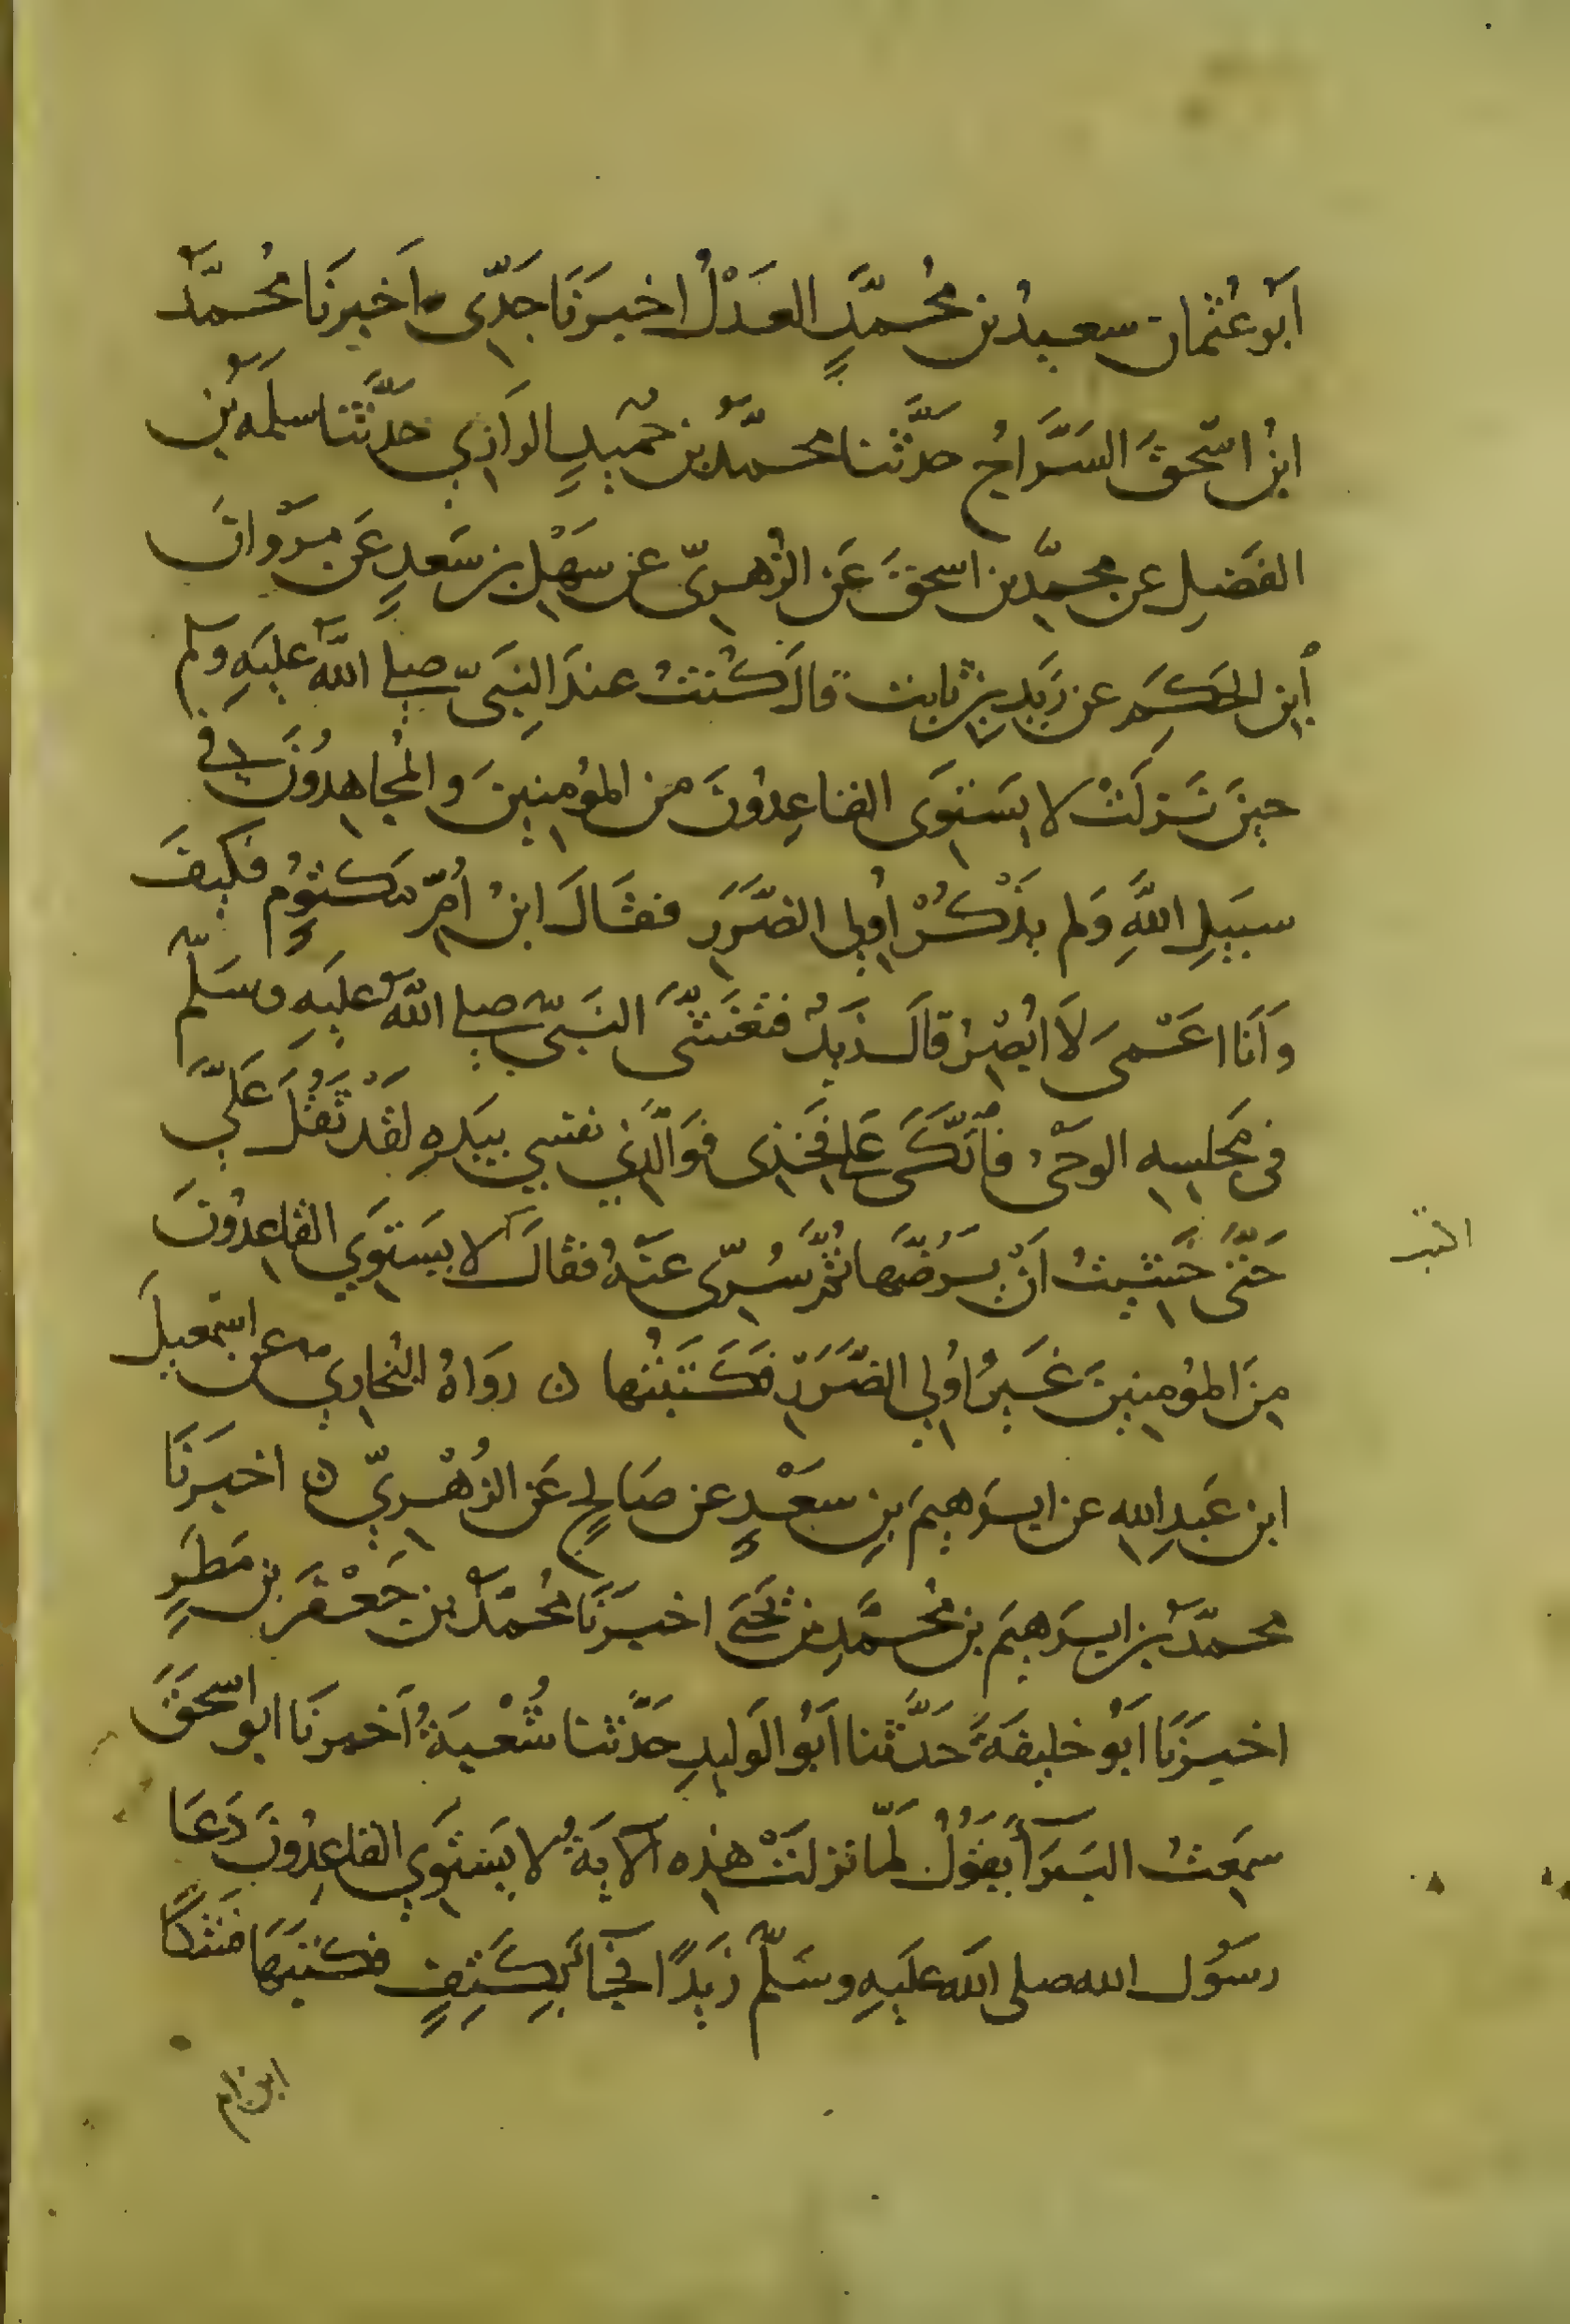 أَبُو عُثْمان سعيدُ بن مُحمَّدٍ العَدْلُ اخبرَنَا جَدِّى اَخبرنَا مُحمَّدُ
ابنُ اسْحقَ السَّرَّاجُ حدَّثنا محمَّدُ بن حُمَيدٍ الرازِي حَدَّثنا سلَمَه بن
الفَضلِ عن محمَّد بن اسحقَ عَن الزُهريّ عن سَهْلِ بن سَعدٍ عَن مرْوانَ
ابنِ الحَكَمِ عن زَيدِ بن ثابت قالَ كُنتُ عندَ النَبىّ صلى اللهُ عليَهِ وسلم
حينَ نَزلَتْ لا يَستَوَى القاعِدُونَ من المؤمنِينَ والمُجاهِدُونَ فى
سبيَلِ اللَّهِ وَلم يذْكُرْ أُولِى الضَّرَرِ فقَالَ ابنُ أُمّ مَكتومٍ فكيفَ
وَأَنَا اعْمى لَا ابُصِرُ قالَ زَيدٌ فتَغَشَّى النَبىّ صلى اللهُ عليَهِ وسَلّم
فى مَجلسِهِ الوحْىُ فاتّكَى عَلى فَخِذِى فَوَالَّذِي نفسى بِيَدِهِ لقَدْ ثَقُلَ عَلَىَّ
حَتَّى خَشيتُ أَنْ يَرُضَّهَا ثُمَّ سُرّى عَنْهُ فقَالَ لا يَستَوِي القاعِدُونَ
اكتب
مِنَ المؤمِنِينَ غَيرُ أُولِي الضَّرَرِ فكَتَبْتُها ن رَوَاهُ البُخارِي عن اسْمعيلَ
ابن عَبدِ اللهِ عن ابرَهيمَ بنِ سَعْدٍ عن صَالحٍ عَن الزُهْريّ ن اخبرَنَا
محمَّدُ بن ابرَهيمَ بن مُحمَّدِ بن يَحْيَى اخبرَنَا مُحمَّدُ بن جَعْفَر بن مَطَرٍ
اخبرَنَا أبُو خليفَةَ حَدَّثنا أَبُو الوَليدِ حَدَّثنا شُعْبَةُ أَخبرنَا ابو اسحَقَ
سمِعتُ البَرَآءَ يَقُولُ لَمّا نزلَتْ هذِه الآيَةُ لا يَستَوِي القاعِدُونَ دَعَا
رسُول الله صلى اللّه عليَهِ وسَلّم زَيدًا فجَآءَ بِكَتِفٍ فكتبَهَا فشَكَا
ابن ام